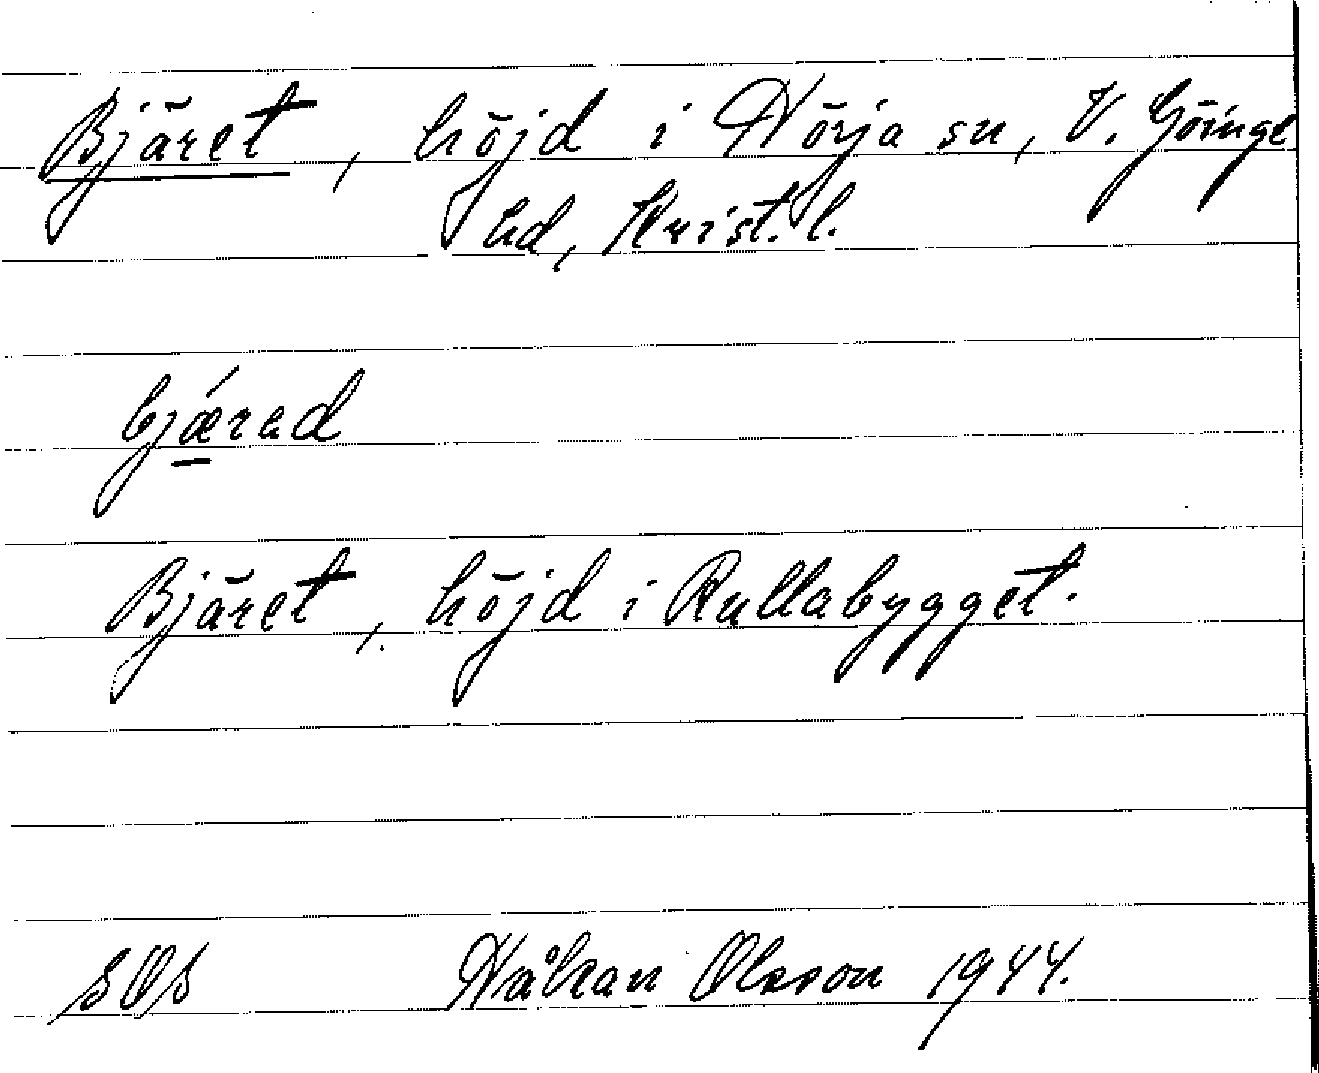 Bjäret, höjd i Hörja sn, V. Göinge
hd, Krist. l.
bjǽrad
Bjäret, höjd i Rallabygget.
SOS Håkan Olsson 1944.